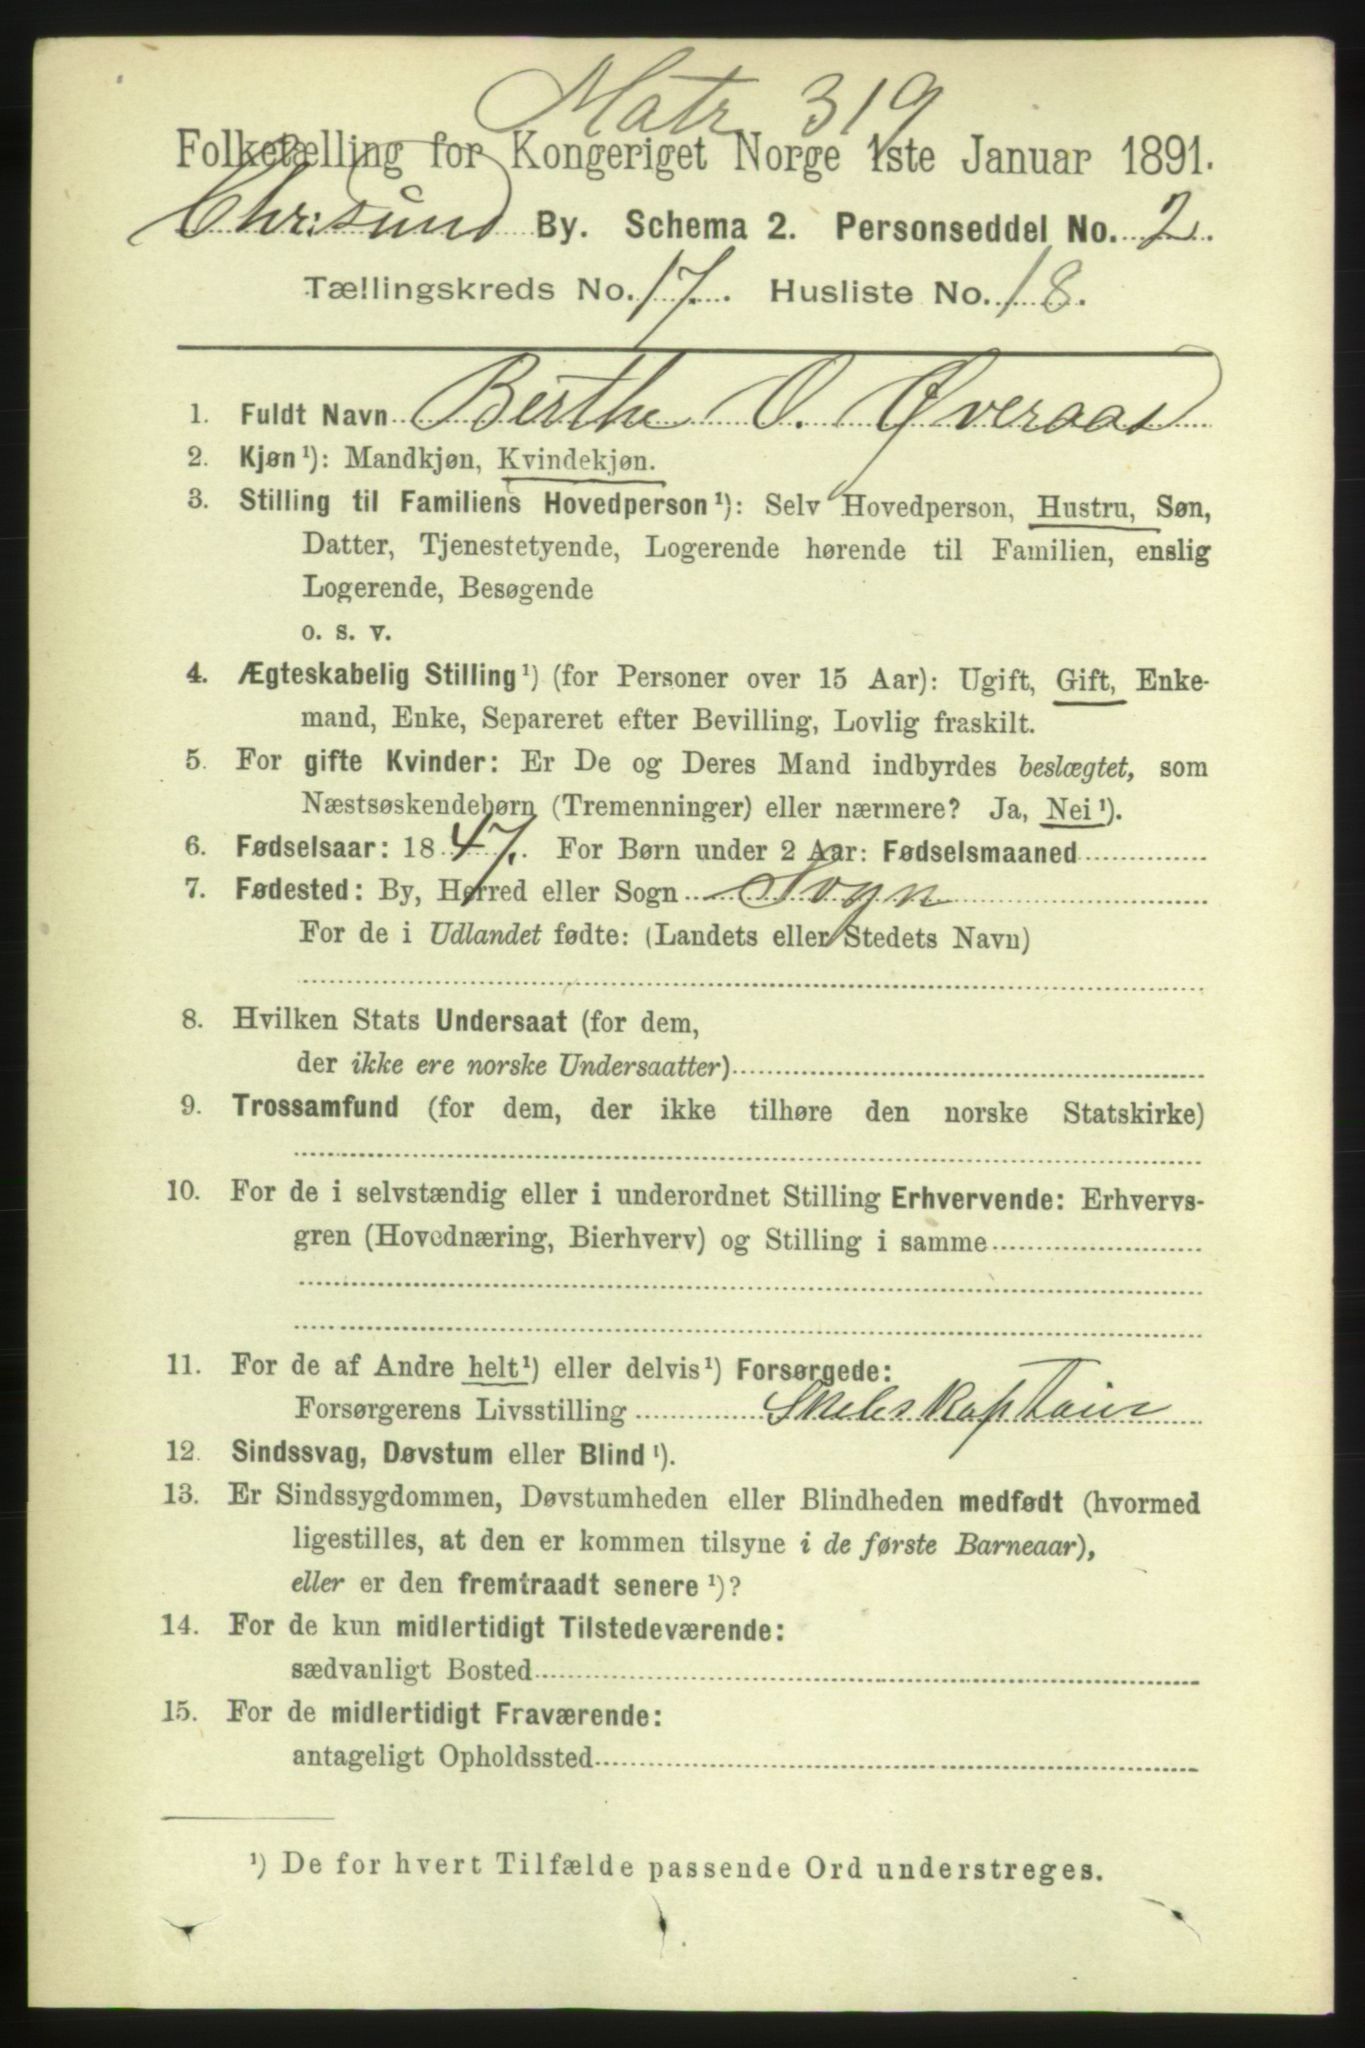 Matr 319
Folketælling for Kongeriget Norge 1ste Januar 1891.
Chr:sund By. Schema 2. Personseddel No. 2.
Tællingskreds No. 17. Husliste No. 18.
1. Fuldt Navn Berthe O. Øveraas
2. Kjøn ¹): Mandkjøn, Kvindekjøn.
3. Stilling til Familiens Hovedperson ¹): Selv Hovedperson, Hustru, Søn,
Datter, Tjenestetyende, Logerende hørende til Familien, enslig
Logerende, Besøgende
o. s. v.
4. Ægteskabelig Stilling ¹) (for Personer over 15 Aar): Ugift, Gift, Enke-
mand, Enke, Separeret efter Bevilling, Lovlig fraskilt.
5. For gifte Kvinder: Er De og Deres Mand indbyrdes beslægtet, som
Næstsøskendebørn (Tremenninger) eller nærmere? Ja, Nei ¹).
6. Fødselsaar: 1847. For Børn under 2 Aar: Fødselsmaaned
7. Fødested: By, Herred eller Sogn Sogn
For de i Udlandet fødte: (Landets eller Stedets Navn)
8. Hvilken Stats Undersaat (for dem,
der ikke ere norske Undersaatter)
9. Trossamfund (for dem, der ikke tilhøre den norske Statskirke)
10. For de i selvstændig eller i underordnet Stilling Erhvervende: Erhvervs-
gren (Hovednæring, Bierhverv) og Stilling i samme
11. For de af Andre helt ¹) eller delvis ¹) Forsørgede:
Forsørgerens Livsstilling Skibskaptain
12. Sindssvag, Døvstum eller Blind ¹).
13. Er Sindssygdommen, Døvstumheden eller Blindheden medfødt (hvormed
ligestilles, at den er kommen tilsyne i de første Barneaar),
eller er den fremtraadt senere ¹)?
14. For de kun midlertidigt Tilstedeværende:
sædvanligt Bosted
15. For de midlertidigt Fraværende:
antageligt Opholdssted
¹) De for hvert Tilfælde passende Ord understreges.